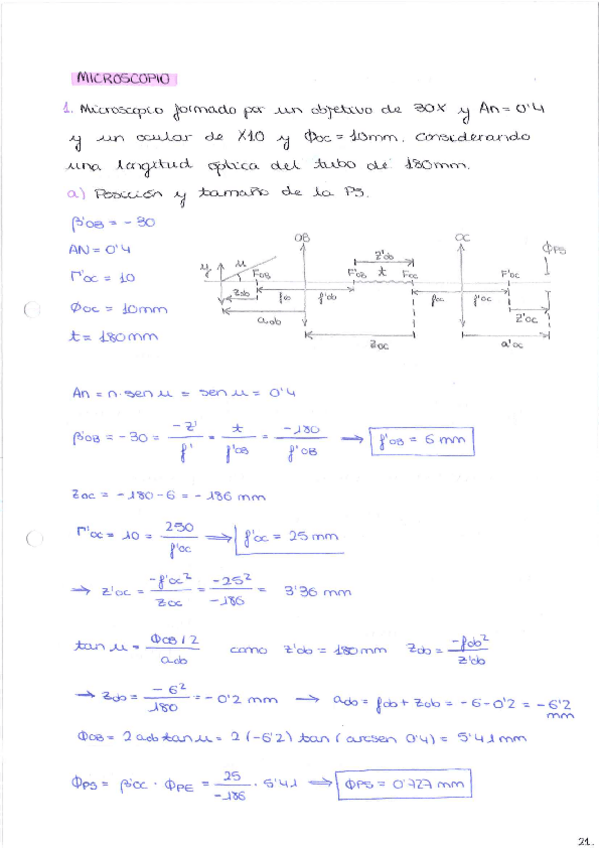 MICROSCOPIO
1. Microscopio formado por un objetivo de 30X y An = 0'4
y un ocular de X10 y Φoc = 10mm, considerando
una longitud óptica del tubo de 180mm.
a) Posición y tamaño de la PS.
β'OB = - 30
AN = 0'4
Γ'oc = 10
Φoc = 10mm
t = 180mm
OB OC ΦPS
y u FOB F'OB z'ob t Foc F'oc
zob fob f'ob foc f'oc z'oc
aob zoc a'oc
An = n · sen u = sen u = 0'4
β'OB = -30 = -z' / f' = t / f'OB = -180 / f'OB → f'OB = 6 mm
zoc = -180 - 6 = - 186 mm
Γ'oc = 10 = 250 / f'oc → f'oc = 25 mm
→ z'oc = -f'oc² / zoc = -25² / -186 = 3'36 mm
tan u = ΦOB / 2 / aob como z'ob = 180mm zob = -fob² / z'ob
→ zob = - 6² / 180 = - 0'2 mm → aob = fob + zob = - 6 - 0'2 = - 6'2 mm
ΦOB = 2 aob tan u = 2 (-6'2) tan (arcsen 0'4) = 5'41 mm
ΦPS = β'oc · ΦPE = 25 / -186 · 5'41 → ΦPS = 0'727 mm
21.